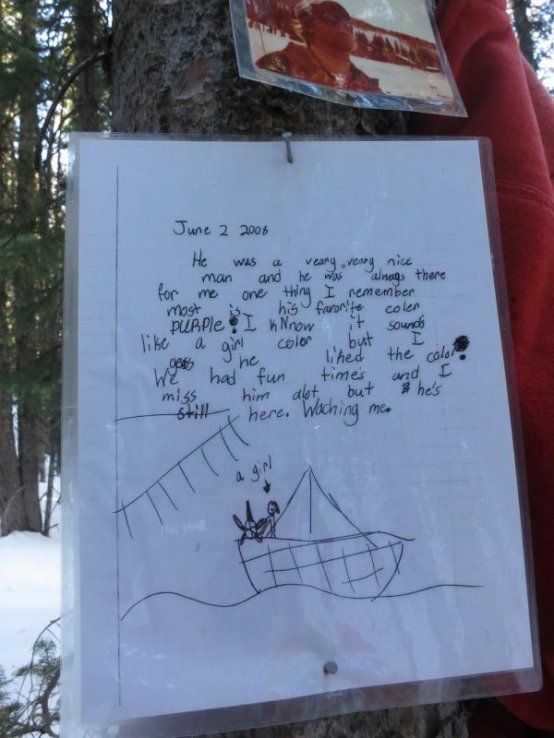 June 2 2006
He was a veary veary nice
man and he was always there
for me one thing I remember
most is his favorite coler
PURPLE I kNnow it sounds
like a girl color but I
gess he liked the color
We had fun times and I
miss him alot but he's
still here. Waching me.
a girl